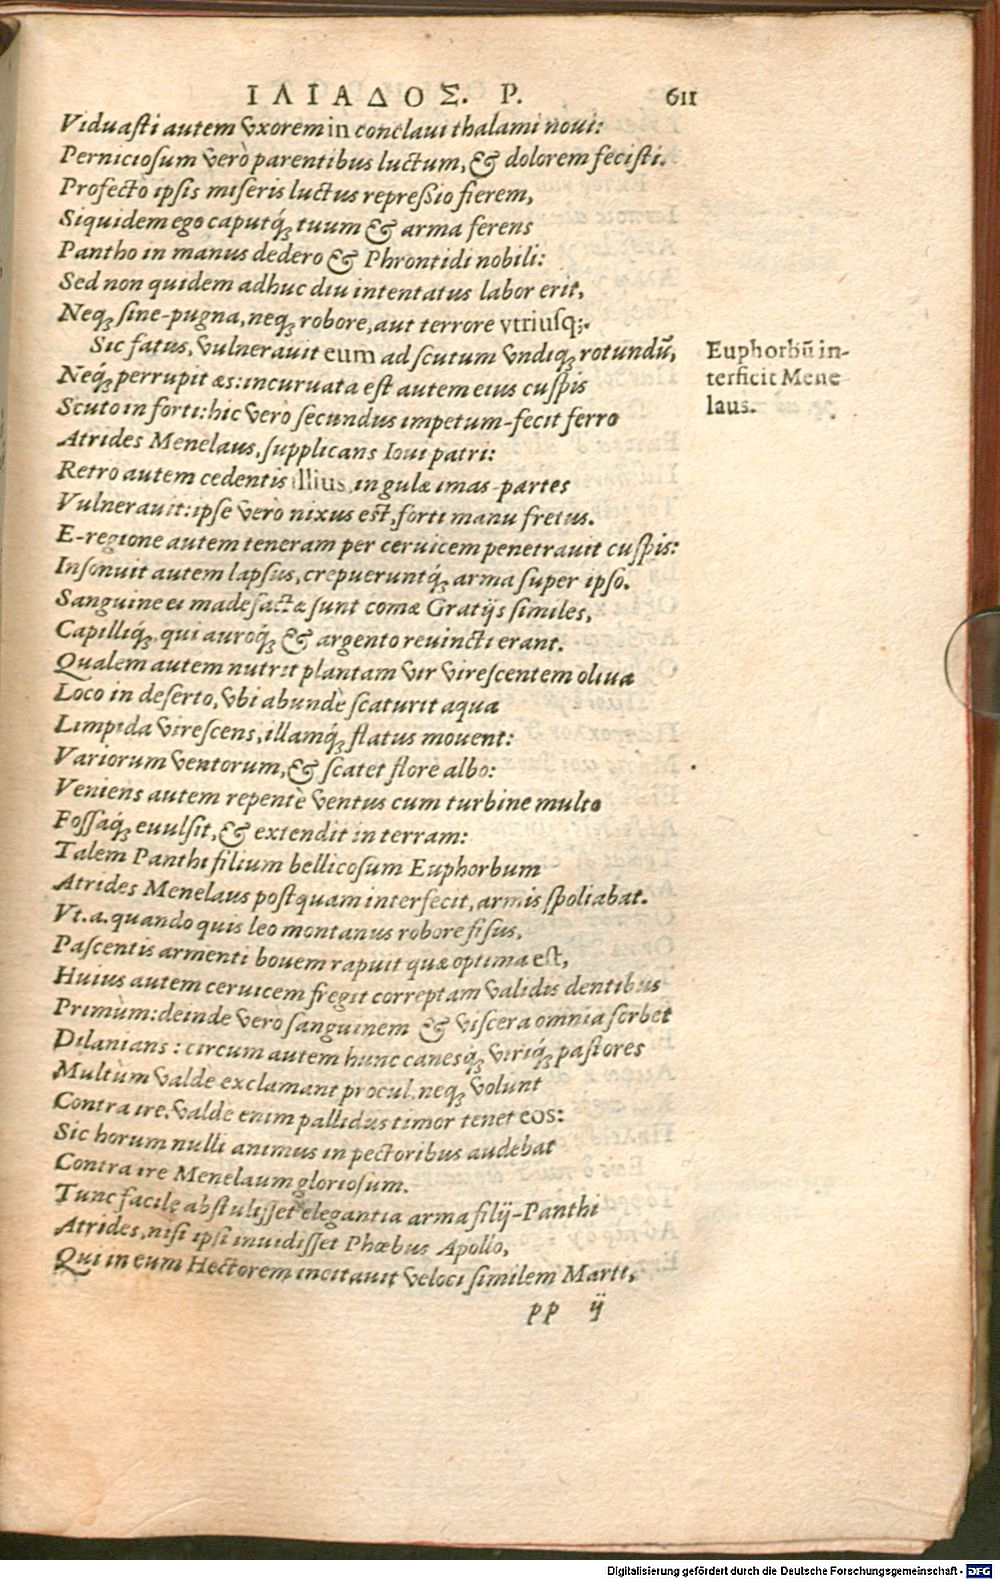 ΙΛΙΑΔΟΣ. Ρ. 611
Viduasti autem vxorem in conclaui thalami noui:
Perniciosum verò parentibus luctum, & dolorem fecisti.
Profecto ipsis miseris luctus repressio fierem,
Siquidem ego caputq́; tuum & arma ferens
Pantho in manus dedero & Phrontidi nobili:
Sed non quidem adhuc diu intentatus labor erit,
Neq; sine-pugna, neq; robore, aut terrore vtriusq;.
Sic fatus, vulnerauit eum ad scutum vndiq; rotundũ,
Neq́; perrupit æs: incuruata est autem eius cuspis
Scuto in forti: hic verò secundus impetum-fecit ferro
Atrides Menelaus, supplicans Ioui patri:
Retro autem cedentis illius, in gulæ imas-partes
Vulnerauit: ipse verò nixus est, forti manu fretus.
E-regione autem teneram per ceruicem penetrauit cuspis:
Insonuit autem lapsus, crepueruntq́; arma super ipso.
Sanguine ei madefactæ sunt comæ Gratijs similes,
Capilliq́; qui auroq́; & argento reuincti erant.
Qualem autem nutrit plantam vir virescentem oliuæ
Loco in deserto, vbi abundè scaturit aqua
Limpida virescens, illamq́; flatus mouent:
Variorum ventorum, & scatet flore albo:
Veniens autem repentè ventus cum turbine multo
Fossaq́; euulsit, & extendit in terram:
Talem Panthi filium bellicosum Euphorbum
Atrides Menelaus postquam interfecit, armis spoliabat.
Vt.a.quando quis leo montanus robore fisus,
Pascentis armenti bouem rapuit quæ optima est,
Huius autem ceruicem fregit correptam validis dentibus
Primùm: deinde verò sanguinem & viscera omnia sorbet
Dilanians: circum autem hunc canesq́; viriq́; pastores
Multùm valde exclamant procul, neq; volunt
Contra ire, valde enim pallidus timor tenet eos:
Sic horum nulli animus in pectoribus audebat
Contra ire Menelaum gloriosum.
Tunc facile abstulisset elegantia arma filij-Panthi
Atrides, nisi ipsi inuidisset Phœbus Apollo,
Qui in eum Hectorem incitauit veloci similem Marti,
pp ij
Euphorbũ in-
terficit Mene
laus.
Digitalisierung gefördert durch die Deutsche Forschungsgemeinschaft - DFG